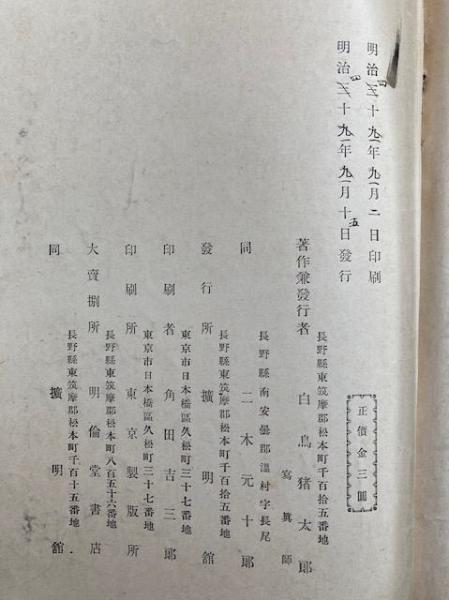 明治三十九年九月二日印刷
四
一
一
明治三十九年九月十日發行
四
一
一
五
正價金三圓
長野縣東筑摩郡松本町千百拾五番地
著作兼發行者 白鳥猪太郎
寫眞師
長野縣南安曇郡溫村字長尾
同 二木元十郎
長野縣東筑摩郡松本町千百拾五番地
發行所 擴明館
東京市日本橋區久松町三十七番地
印刷者 角田吉三郎
東京市日本橋區久松町三十七番地
印刷所 東京製版所
長野縣東筑摩郡松本町八百五十六番地
大賣捌所 明倫堂書店
長野縣東筑摩郡松本町千百十五番地
同 擴明館